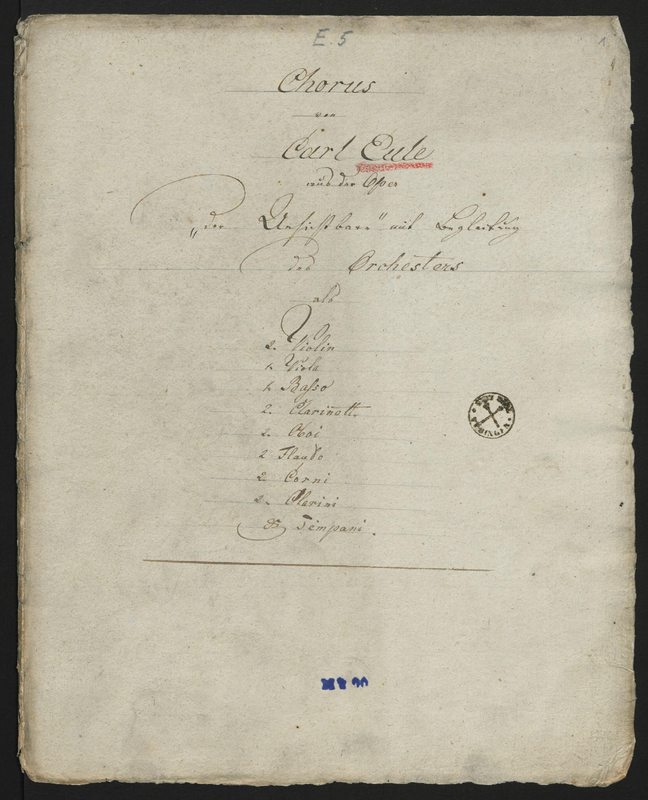 E. 5
1.
Chorus
von
Carl Eule
aus der Oper
„der Unsichtbare" mit Begleitung
des Orchesters
als
2. Violin
1. Viola
1. Basso
2. Clarinett.
2. Oboi
2 Flauto
2. Corni
2. Clarini
& Timpani.